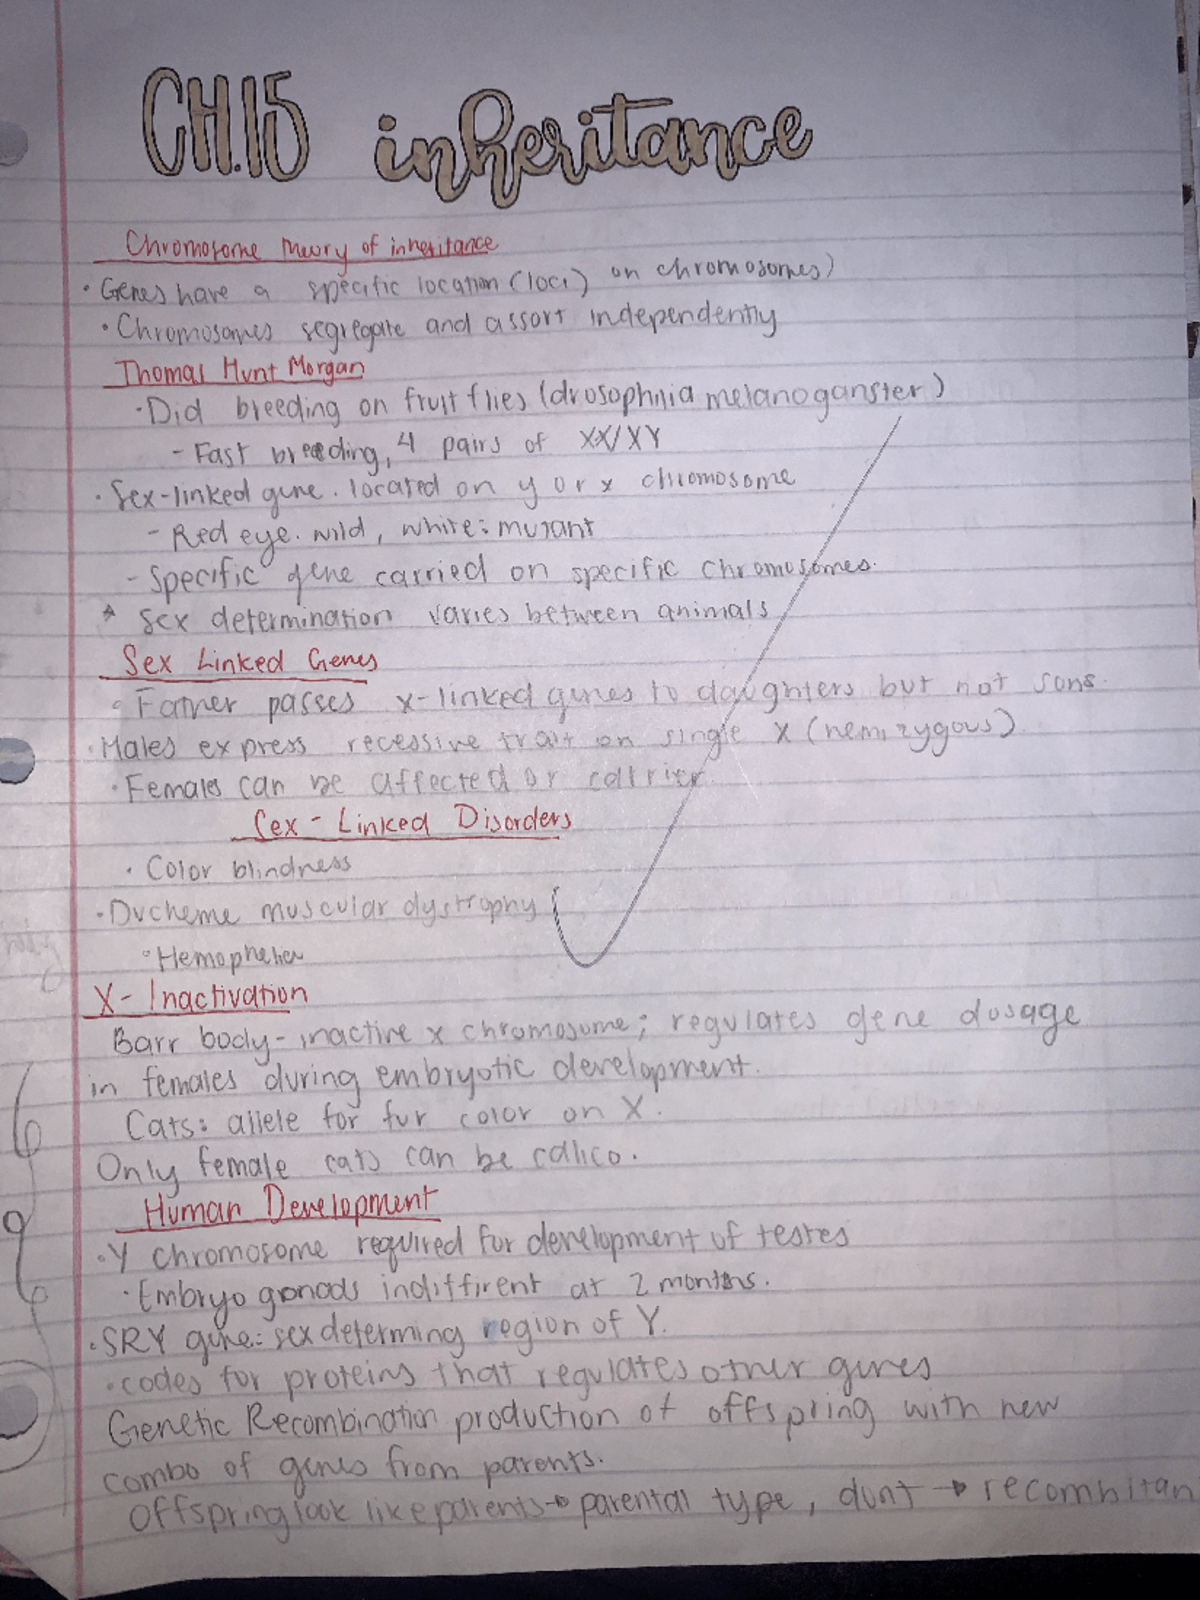 CH.15 inheritance
Chromosome theory of inheritance
· Genes have a specific location (loci) on chromosomes)
· Chromosomes segregate and assort independently
Thomas Hunt Morgan
· Did breeding on fruit flies (drosophnia melanoganster)
- Fast breeding, 4 pairs of XX/XY
· Sex-linked gene. located on y or x chromosome
- Red eye. wild, white: mutant
- Specific gene carried on specific chromosomes.
* Sex determination varies between animals
Sex Linked Genes
· Father passes x-linked genes to daughters but not sons.
· Males express recessive trait on single x (hemizygous)
· Females can be affected or carrier
Sex-Linked Disorders
· Color blindness
· Ducheme muscular dystrophy
· Hemophelia
X-Inactivation
Barr body- inactive x chromosome; regulates gene dosage
in females during embryotic development.
Cats: allele for fur color on X.
Only female cats can be calico.
Human Development
· Y chromosome required for development of testes
· Embryo gonads indiffirent at 2 months.
· SRY gene: sex determing region of Y.
· codes for proteins that regulates other genes
Genetic Recombination production of offspring with new
combo of genes from parents.
Offspring look like parents → parental type, dont → recombitan